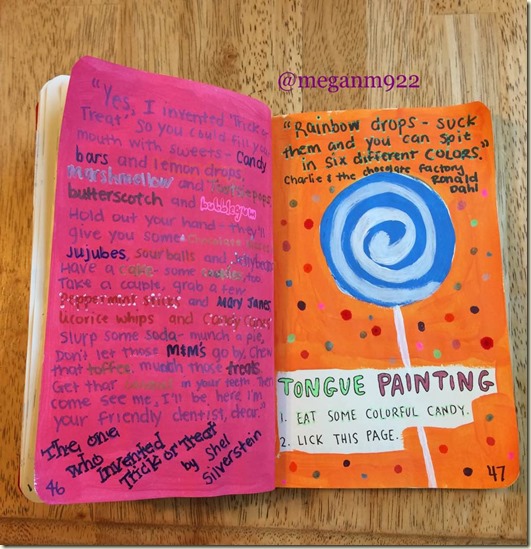 @meganm922
"Yes, I invented 'Trick or
Treat', So you could fill your
mouth with sweets - Candy
bars and lemon drops,
Marshmallow and Tootsie pops,
butterscotch and bubblegum
Hold out your hand - they'll
give you some chocolate
jujubes, sour balls and jellybeans
Have a cake - some too
Take a couple, grab a few
Peppermint sticks and Mary Janes
Licorice whips and Candy Canes
Slurp some soda - munch a pie,
Don't let those M&M's go by, Chew
that toffee, munch those treats
Get that in your teeth, Then
come see me, I'll be here, I'm
your friendly dentist, dear."
The one
who Invented
Trick or Treat
by Shel
Silverstein
46
"Rainbow drops - suck
them and you can spit
in six different COLORS."
Charlie & the chocolate factory
Ronald
Dahl
TONGUE PAINTING
1. EAT SOME COLORFUL CANDY.
2. LICK THIS PAGE.
47